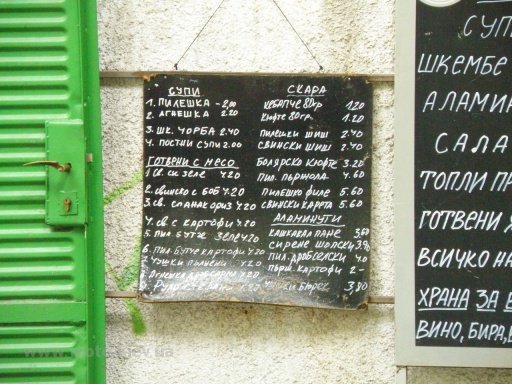 СУПИ
1. ПИЛЕШКА - 2,00
2. АГНЕШКА 2.20
3. ШК. ЧОРБА 2.40
4. ПОСТНИ СУПИ 2.00
ГОТВЕНИ С МЕСО
1 СВ. СЪС ЗЕЛЕ 4.20
2. СВИНСКО С БОБ 4.20
3. СВ. СПАНАК ОРИЗ 4.20
4. СВ С КАРТОФИ 4.20
5. ПИЛ БУТЧЕ ЗЕЛЕ 4.20
6. ПИЛ. БУТЧЕ КАРТОФИ 4.20
7. ЧУШКИ ПЪЛНЕНИ 4.20
АГНЕШКА 4.20
СКАРА
КЕБАПЧЕ 80гр 1.20
КЮФТЕ 80гр. 1.20
ПИЛЕШКИ ШИШ 2.40
СВИНСКИ ШИШ 2.40
БОЛЯРСКО КЮФТЕ 3.20
ПИЛ. ПЪРЖОЛА 4.60
ПИЛЕШКО ФИЛЕ 5.60
СВИНСКИ КАРЕТА 5.60
АЛАМИНУТИ
КАШКАВАЛ ПАНЕ 3,60
СИРЕНЕ ШОПСКИ 3.90
ПИЛ. ДРОБСЕЛСКИ 4.00
ПЪРЖ. КАРТОФИ 2-
БЮРЕК 3,80
СУПИ
ШКЕМБЕ
АЛАМИ
САЛА
ТОПЛИ ПР
ГОТВЕНИ Я
ВСИЧКО НА
ХРАНА ЗА В
ВИНО, БИРА,